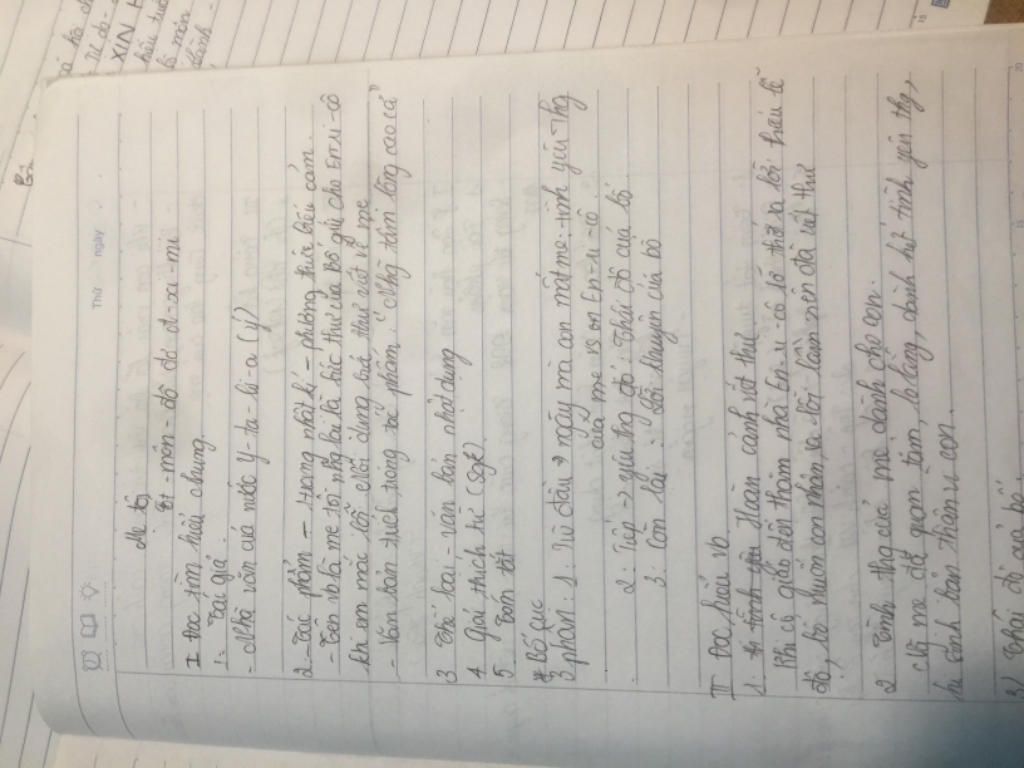 Thứ ngày
Mẹ tôi
Ét-môn-đô đơ A-xi-mi
I Đọc tìm hiểu chung
1. Tác giả
- Nhà văn của nước Y-ta-li-a (Ý)
2. Tác phẩm - trong nhật kí - phương thức biểu cảm
- Tên vb là mẹ tôi ng lại là bức thư của bố gửi cho En-ri-cô
khi em mắc lỗi. Nội dung bức thư viết về mẹ
- Văn bản trích trong tác phẩm "Những tấm lòng cao cả"
3 Thể loại - văn bản nhật dụng
4 Giải thích từ (SGK)
5 Tóm tắt
* Bố cục
3 phần: 1: Từ đầu → ngày mà con mất mẹ - tình yêu thg
của mẹ vs con En-ri-cô
2: Tiếp → yêu thg đó: Thái độ của bố
3: Còn lại: Lời khuyên của bố
II Đọc hiểu vb
1. Hoàn cảnh viết thư
Khi cô giáo đến thăm nhà En-ri-cô có lỡ thốt ra lời thiếu lễ
độ, bố muốn con nhận ra lỗi lầm nên đã viết thư
2. Tình thg của mẹ dành cho con.
Chị mẹ đã quan tâm, lo lắng, dành hết tình yêu thg,
hi sinh bản thân vì con.
3, Thái độ của bố.